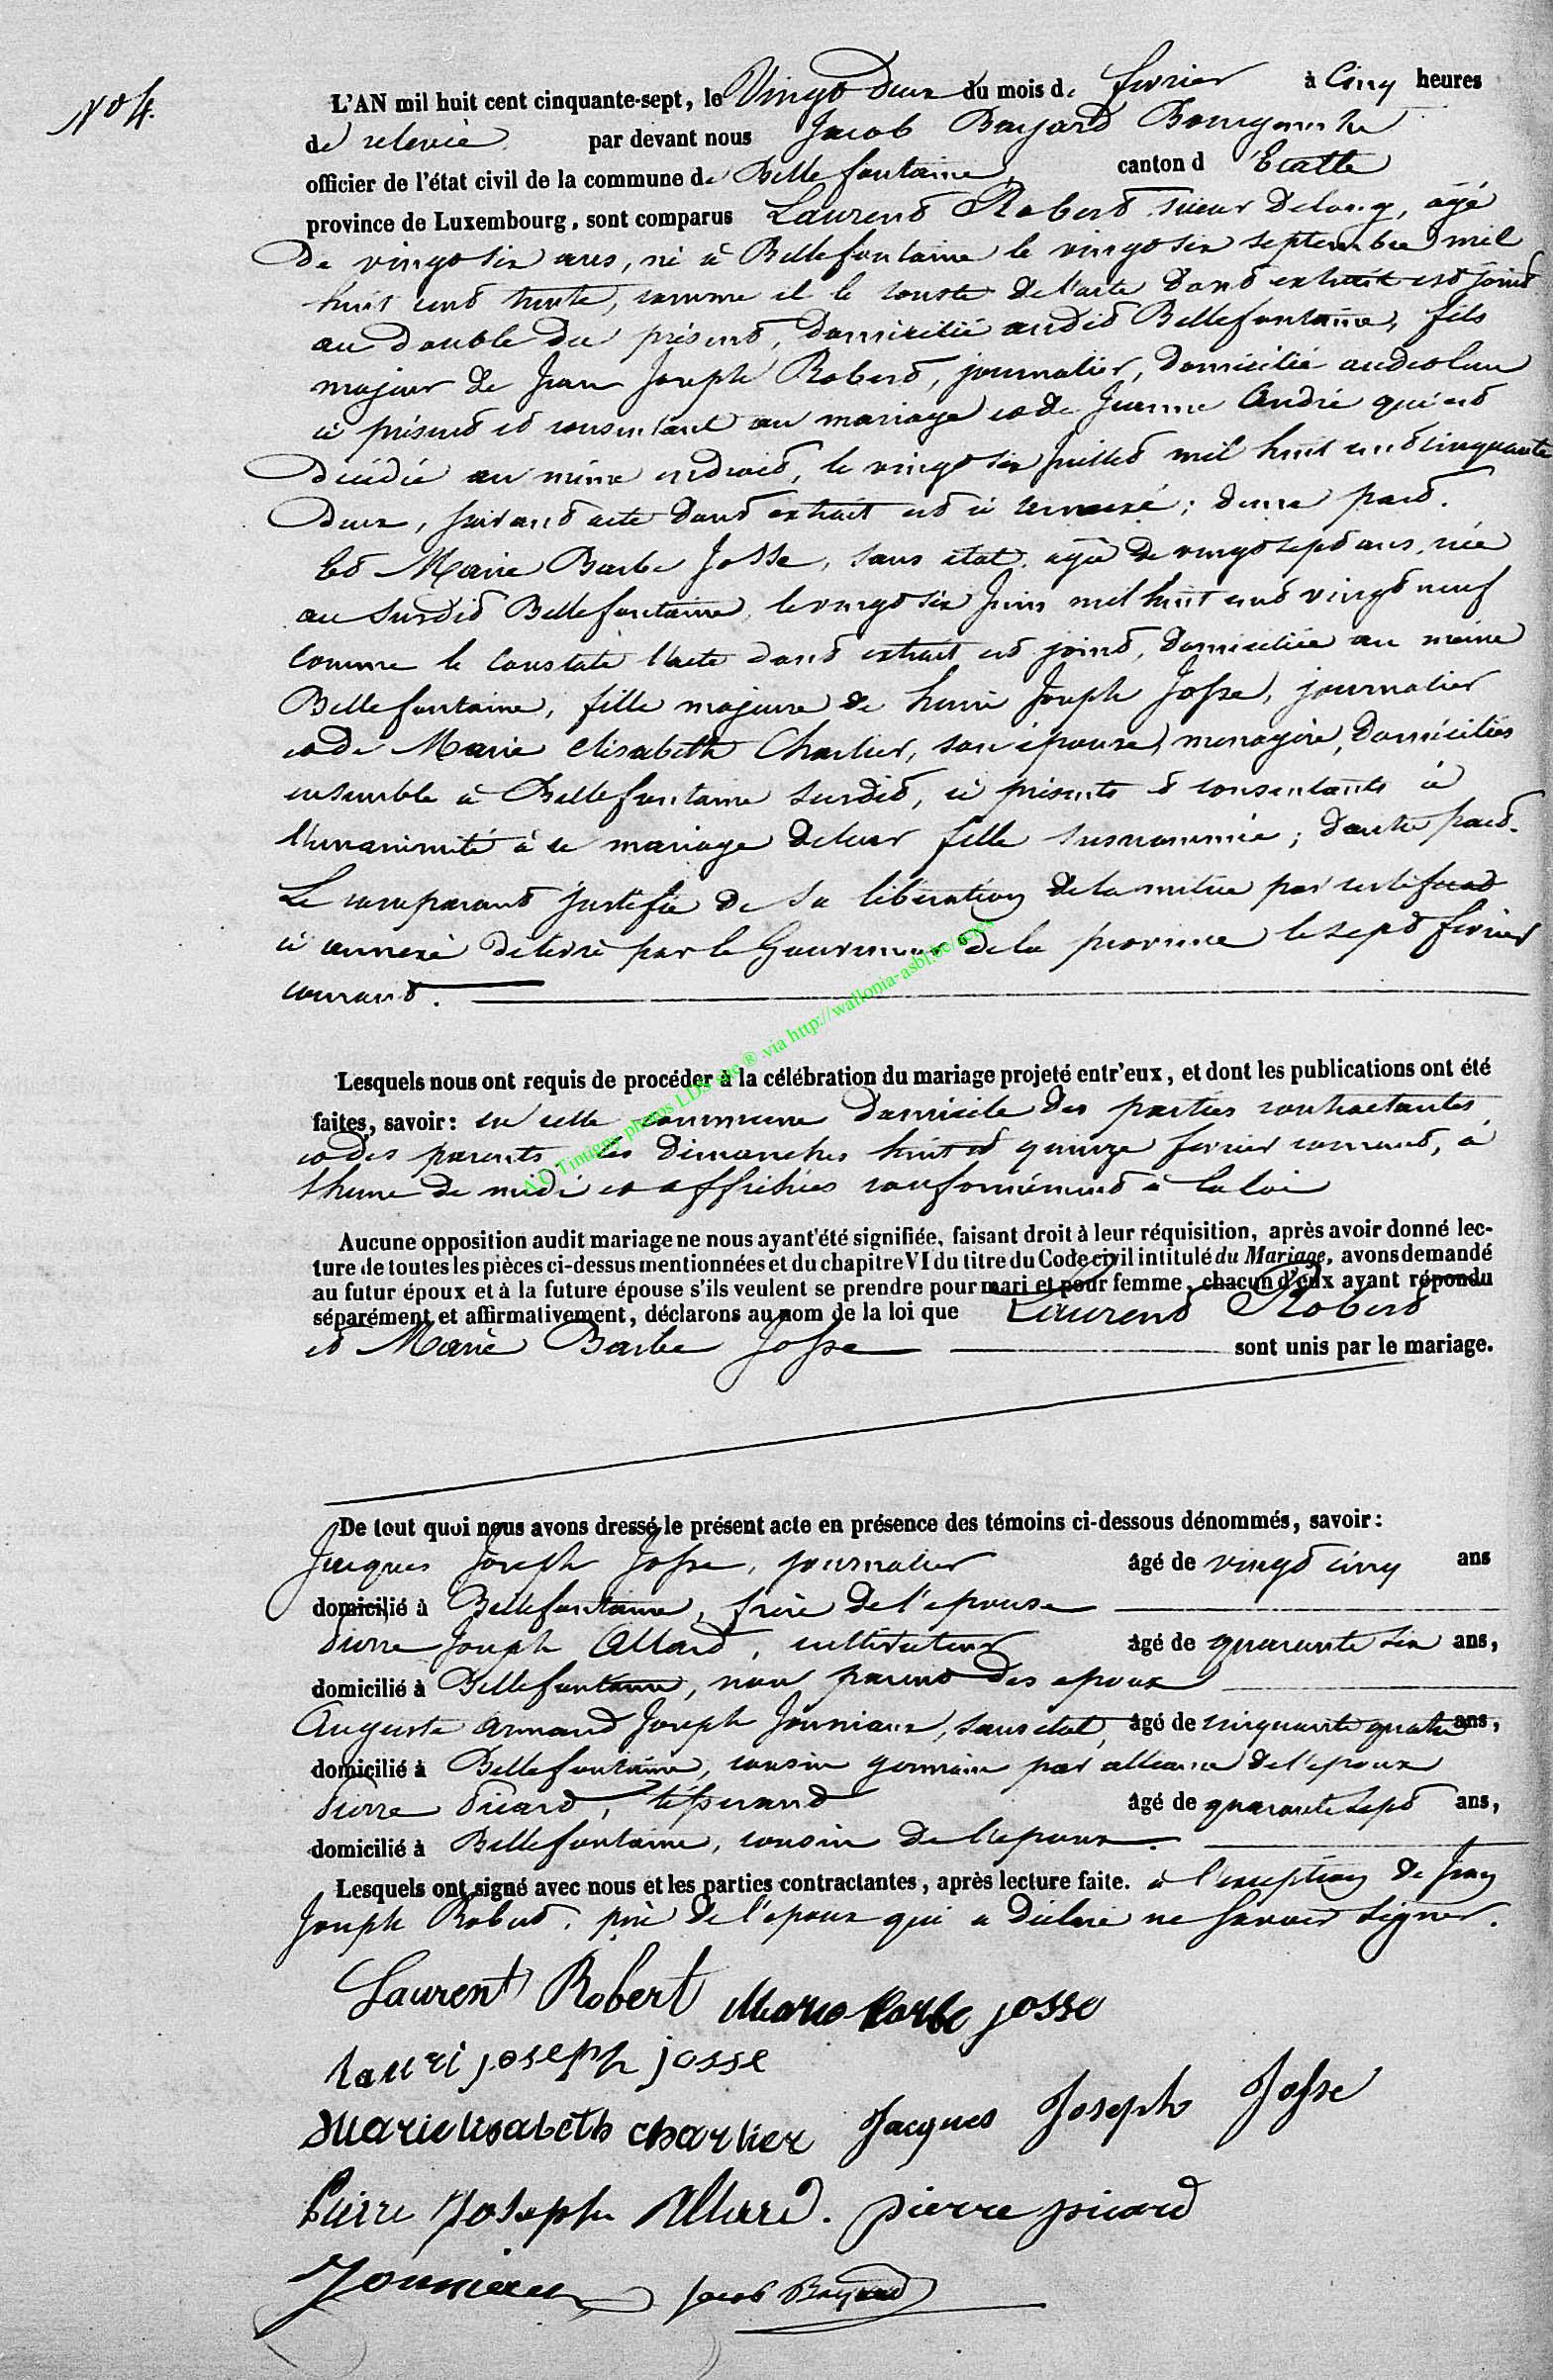 N° 4.
L'AN mil huit cent cinquante-sept, le Vingt Deux du mois de fevrier à Cinq heures
de relevée par devant nous Jacob Bayard Bourgmestre
officier de l'état civil de la commune de Bellefontaine, canton d'Etalle
province de Luxembourg, sont comparus Laurent Robert, scieur Delong, agé
De vingt six ans, né à Bellefontaine le vingt six septembre mil
huit cent trente, comme il le conste de l'acte dont extrait est joint
au double du présent, domicilié audit Bellefontaine, fils
majeur de Jean Joseph Robert, journalier, domicilié audit lieu
ci présent et consentant au mariage et de Jeanne André qui est
décédée au même endroit, le vingt six Juillet mil huit cent cinquante
Deux, suivant acte dont extrait est ci annexé; d'une part.
Et Marie Barbe Josse, sans état, agée de vingt sept ans, née
au susdit Bellefontaine, le vingt six Juin mil huit cent vingt neuf
comme le constate l'acte dont extrait est joint, domiciliée au même
Bellefontaine, fille majeure de henri Joseph Josse, journalier
et de Marie Elisabeth Charlier, son épouse, menagère, domiciliés
ensemble à Bellefontaine susdit, ci présents et consentants à
l'unanimité à ce mariage de leur fille susnommée; d'autre part.
Le comparant justifie de sa libération de la milice par certificat
ci annexé délivré par le Gouverneur de la province le sept février
courant.
Lesquels nous ont requis de procéder à la célébration du mariage projeté entr'eux, et dont les publications ont été
faites, savoir: en cette commune domicile des parties contractantes
et des parents les Dimanches huit et quinze fevrier courant, à
l'heure de midi et affichées conformément à la loi
Aucune opposition audit mariage ne nous ayant été signifiée, faisant droit à leur réquisition, après avoir donné lec-
ture de toutes les pièces ci-dessus mentionnées et du chapitre VI du titre du Code civil intitulé du Mariage, avons demandé
au futur époux et à la future épouse s'ils veulent se prendre pour mari et pour femme, chacun d'eux ayant répondu
séparément et affirmativement, déclarons au nom de la loi que Laurent Robert
et Marie Barbe Josse sont unis par le mariage.
De tout quoi nous avons dressé le présent acte en présence des témoins ci-dessous dénommés, savoir:
Jacques Joseph Josse, journalier âgé de vingt cinq ans
domicilié à Bellefontaine, frère de l'epouse
Pierre Joseph Allard, cultivateur âgé de quarante six ans,
domicilié à Bellefontaine, non parent des epoux
Auguste Armand Joseph Jouniaux, sans état, âgé de cinquante quatre ans,
domicilié à Bellefontaine, cousin germain par alliance de l'epoux
Pierre Picard, tisserand âgé de quarante sept ans,
domicilié à Bellefontaine, cousin de l'epoux.
Lesquels ont signé avec nous et les parties contractantes, après lecture faite. à l'exception de Jean
Joseph Robert, père de l'epoux qui a déclaré ne savoir signer.
Laurent Robert Marie Barbe josse
hanri joseph josse
Marie lisabeth charlier Jacques Joseph Josse
Pierre Joseph Allard. pierre picard
Jouniaux Jacob Bayard
A.C. Tintigny photos LDS site ® via http://wallonia-asbl.be/actes